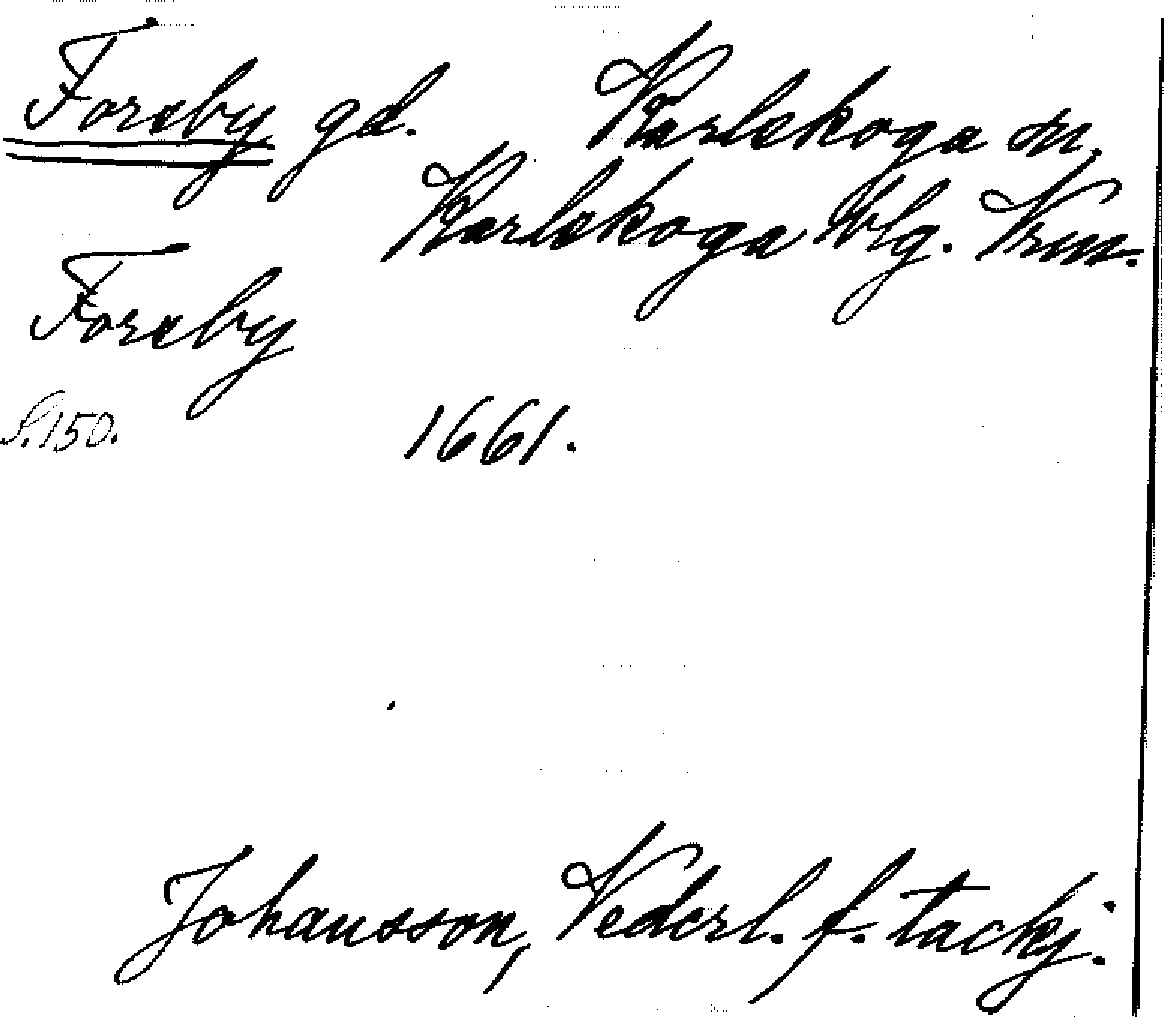 Forsby gd. Karlskoga sn.
Karlskoga blg. Vrm.
Forsby
S.150. 1661.
Johansson, Vederl. f. tackj.